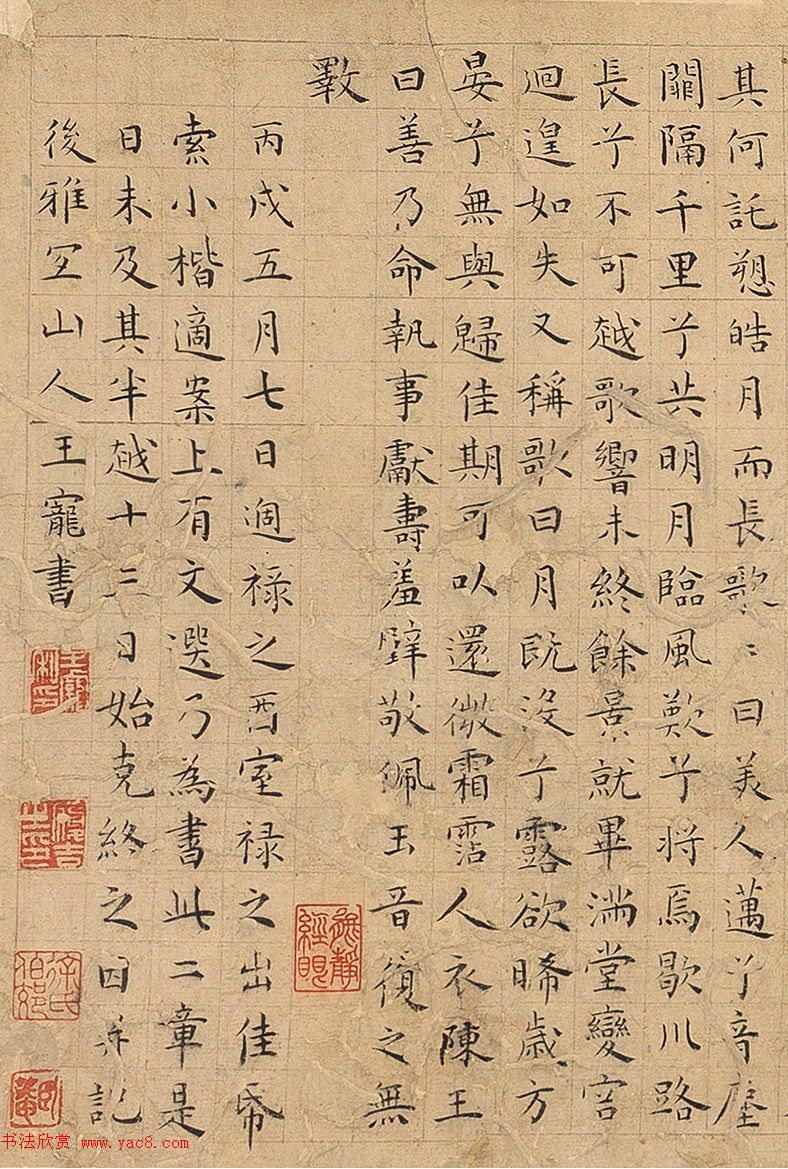 其何託愬皓月而長歌〻曰美人邁兮音塵
闕隔千里兮共明月臨風歎兮將焉歇川路
長兮不可越歌響未終餘景就畢滿堂變容
迴遑如失又稱歌曰月既沒兮露欲晞歲方
晏兮無與歸佳期可以還微霜霑人衣陳王
曰善乃命執事獻壽羞璧敬佩玉音復之無
斁
丙戌五月七日過祿之西室祿之出佳帋
索小楷適案上有文選乃為書此二章是
日未及其半越十三日始克終之因并記
後雅宜山人王寵書
书法欣赏 www.yac8.com